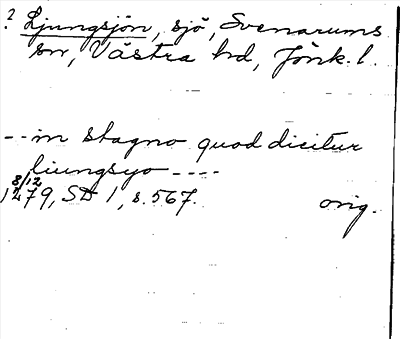 ? Ljungsjön, sjö, Svenarums
sn, Västra hd, Jönk. l.
-- in stagno quod dicitur
liungsyo ----
8/12
1279, SD 1, s. 567. orig.